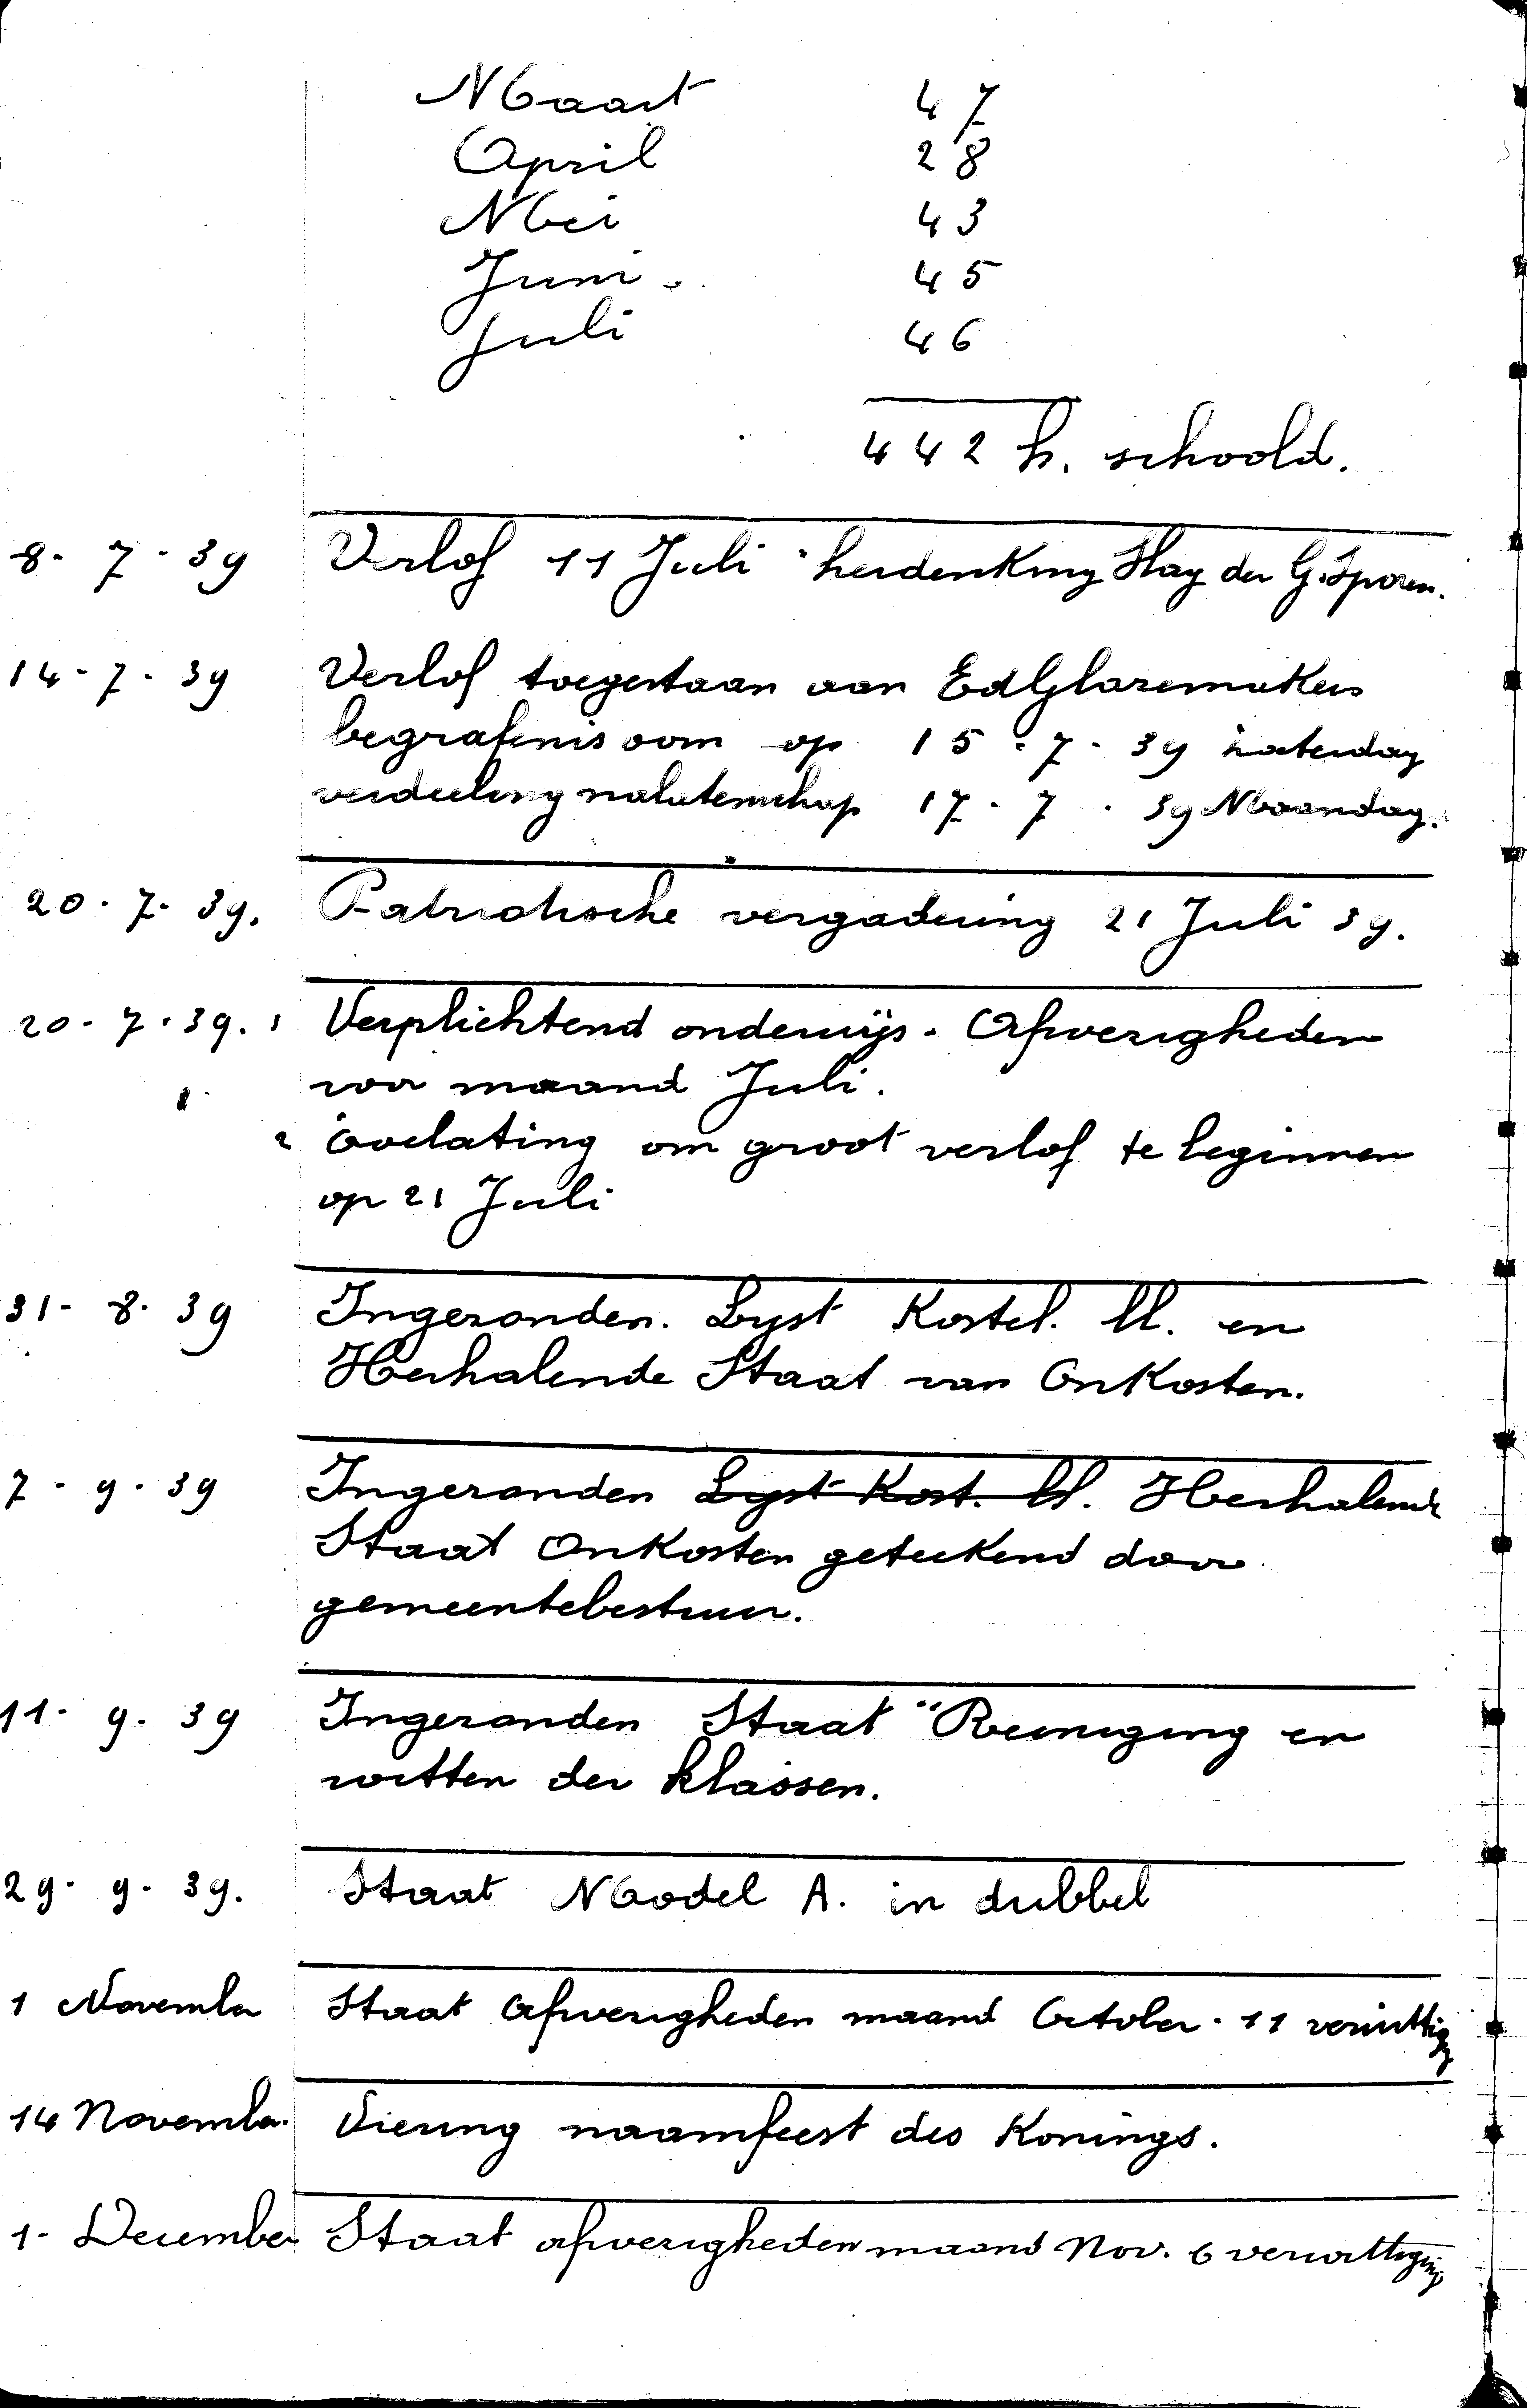 Maart 47
April 28
Mei 43
Juni 45
Juli 46
442 h. schoold.
8-7-39 Verlof 11 Juli herdenking Slag der G. Sporen.
14-7-39 Verlof toegestaan aan Ed Glazemakers
begrafenis oom op 15-7-39 Zaterdag
verdeeling nalatenschap 17-7-39 Maandag.
20-7-39. Patriotische vergadering 21 Juli 39.
20-7-39. 1 Verplichtend onderwijs - Afwezigheden
voor maand Juli.
2 Toelating om groot verlof te beginnen
op 21 Juli
31-8-39 Ingezonden. Lyst Kostel. ll. en
Herhalende Staat van Onkosten.
7-9-39 Ingezonden Lyst Kost. ll. Herhalende
Staat Onkosten geteekend door
gemeentebestuur.
11-9-39 Ingezonden Staat "Reiniging en
witten der klassen.
29-9-39. Staat Model A. in dubbel
1 November Staat Afwezigheden maand October. 11 verwittig
14 November. Viering naamfeest des Konings.
1- December Staat afwezigheden maand Nov. 6 verwittiging